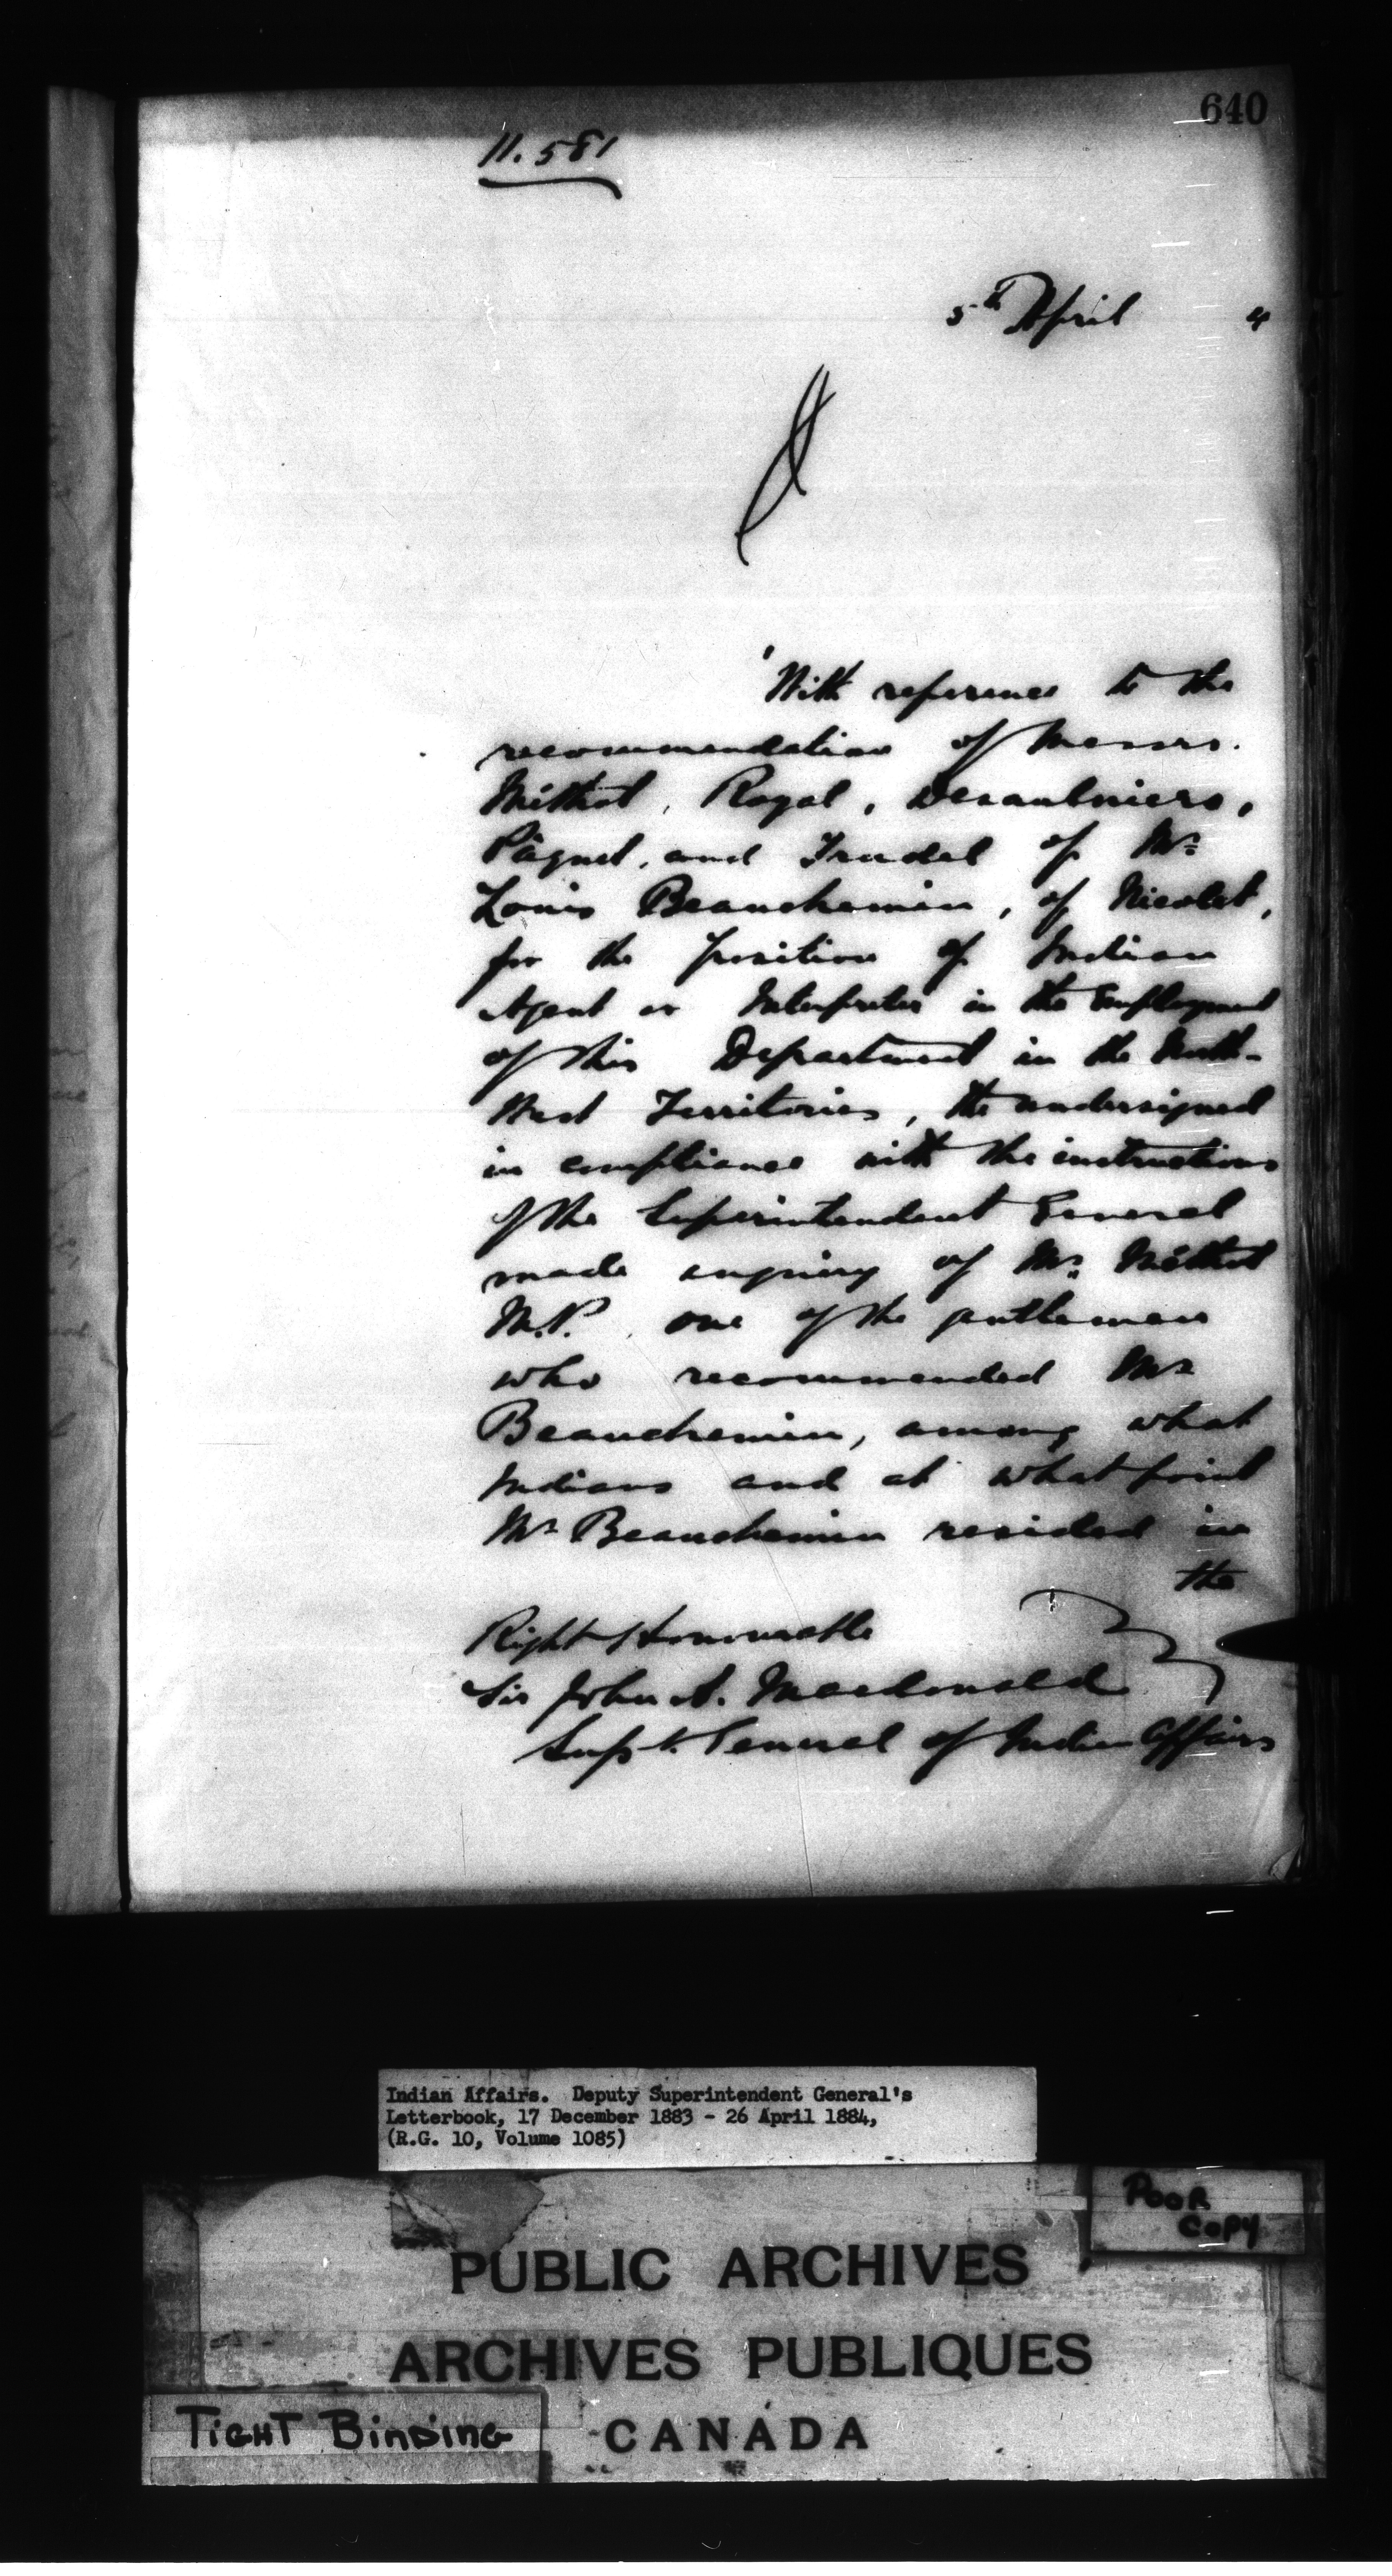 640
11.581
5th April 4
With reference to the
recommendation of Messrs.
Méthot, Royal, Desaulniers,
Pâquet, and Trudel of Mr.
Louis Beauchemin, of Nicolet,
for the position of Indian
Agent or Interpreter in the Employment
of this Department in the North-
West Territories, the undersigned
in compliance with the instructions
of the Superintendent General
made enquiry of Mr. Méthot
M.P. one of the gentlemen
who recommended Mr
Beauchemin, among what
Indians and at what point
Mr Beauchemin resided in
the
Right Honourable
Sir John A. Macdonald
Supt. General of Indian Affairs
Indian Affairs. Deputy Superintendent General's
Letterbook, 17 December 1883 - 26 April 1884,
(R.G. 10, Volume 1085)
POOR
COPY
PUBLIC ARCHIVES
ARCHIVES PUBLIQUES
CANADA
TIGHT BINDING